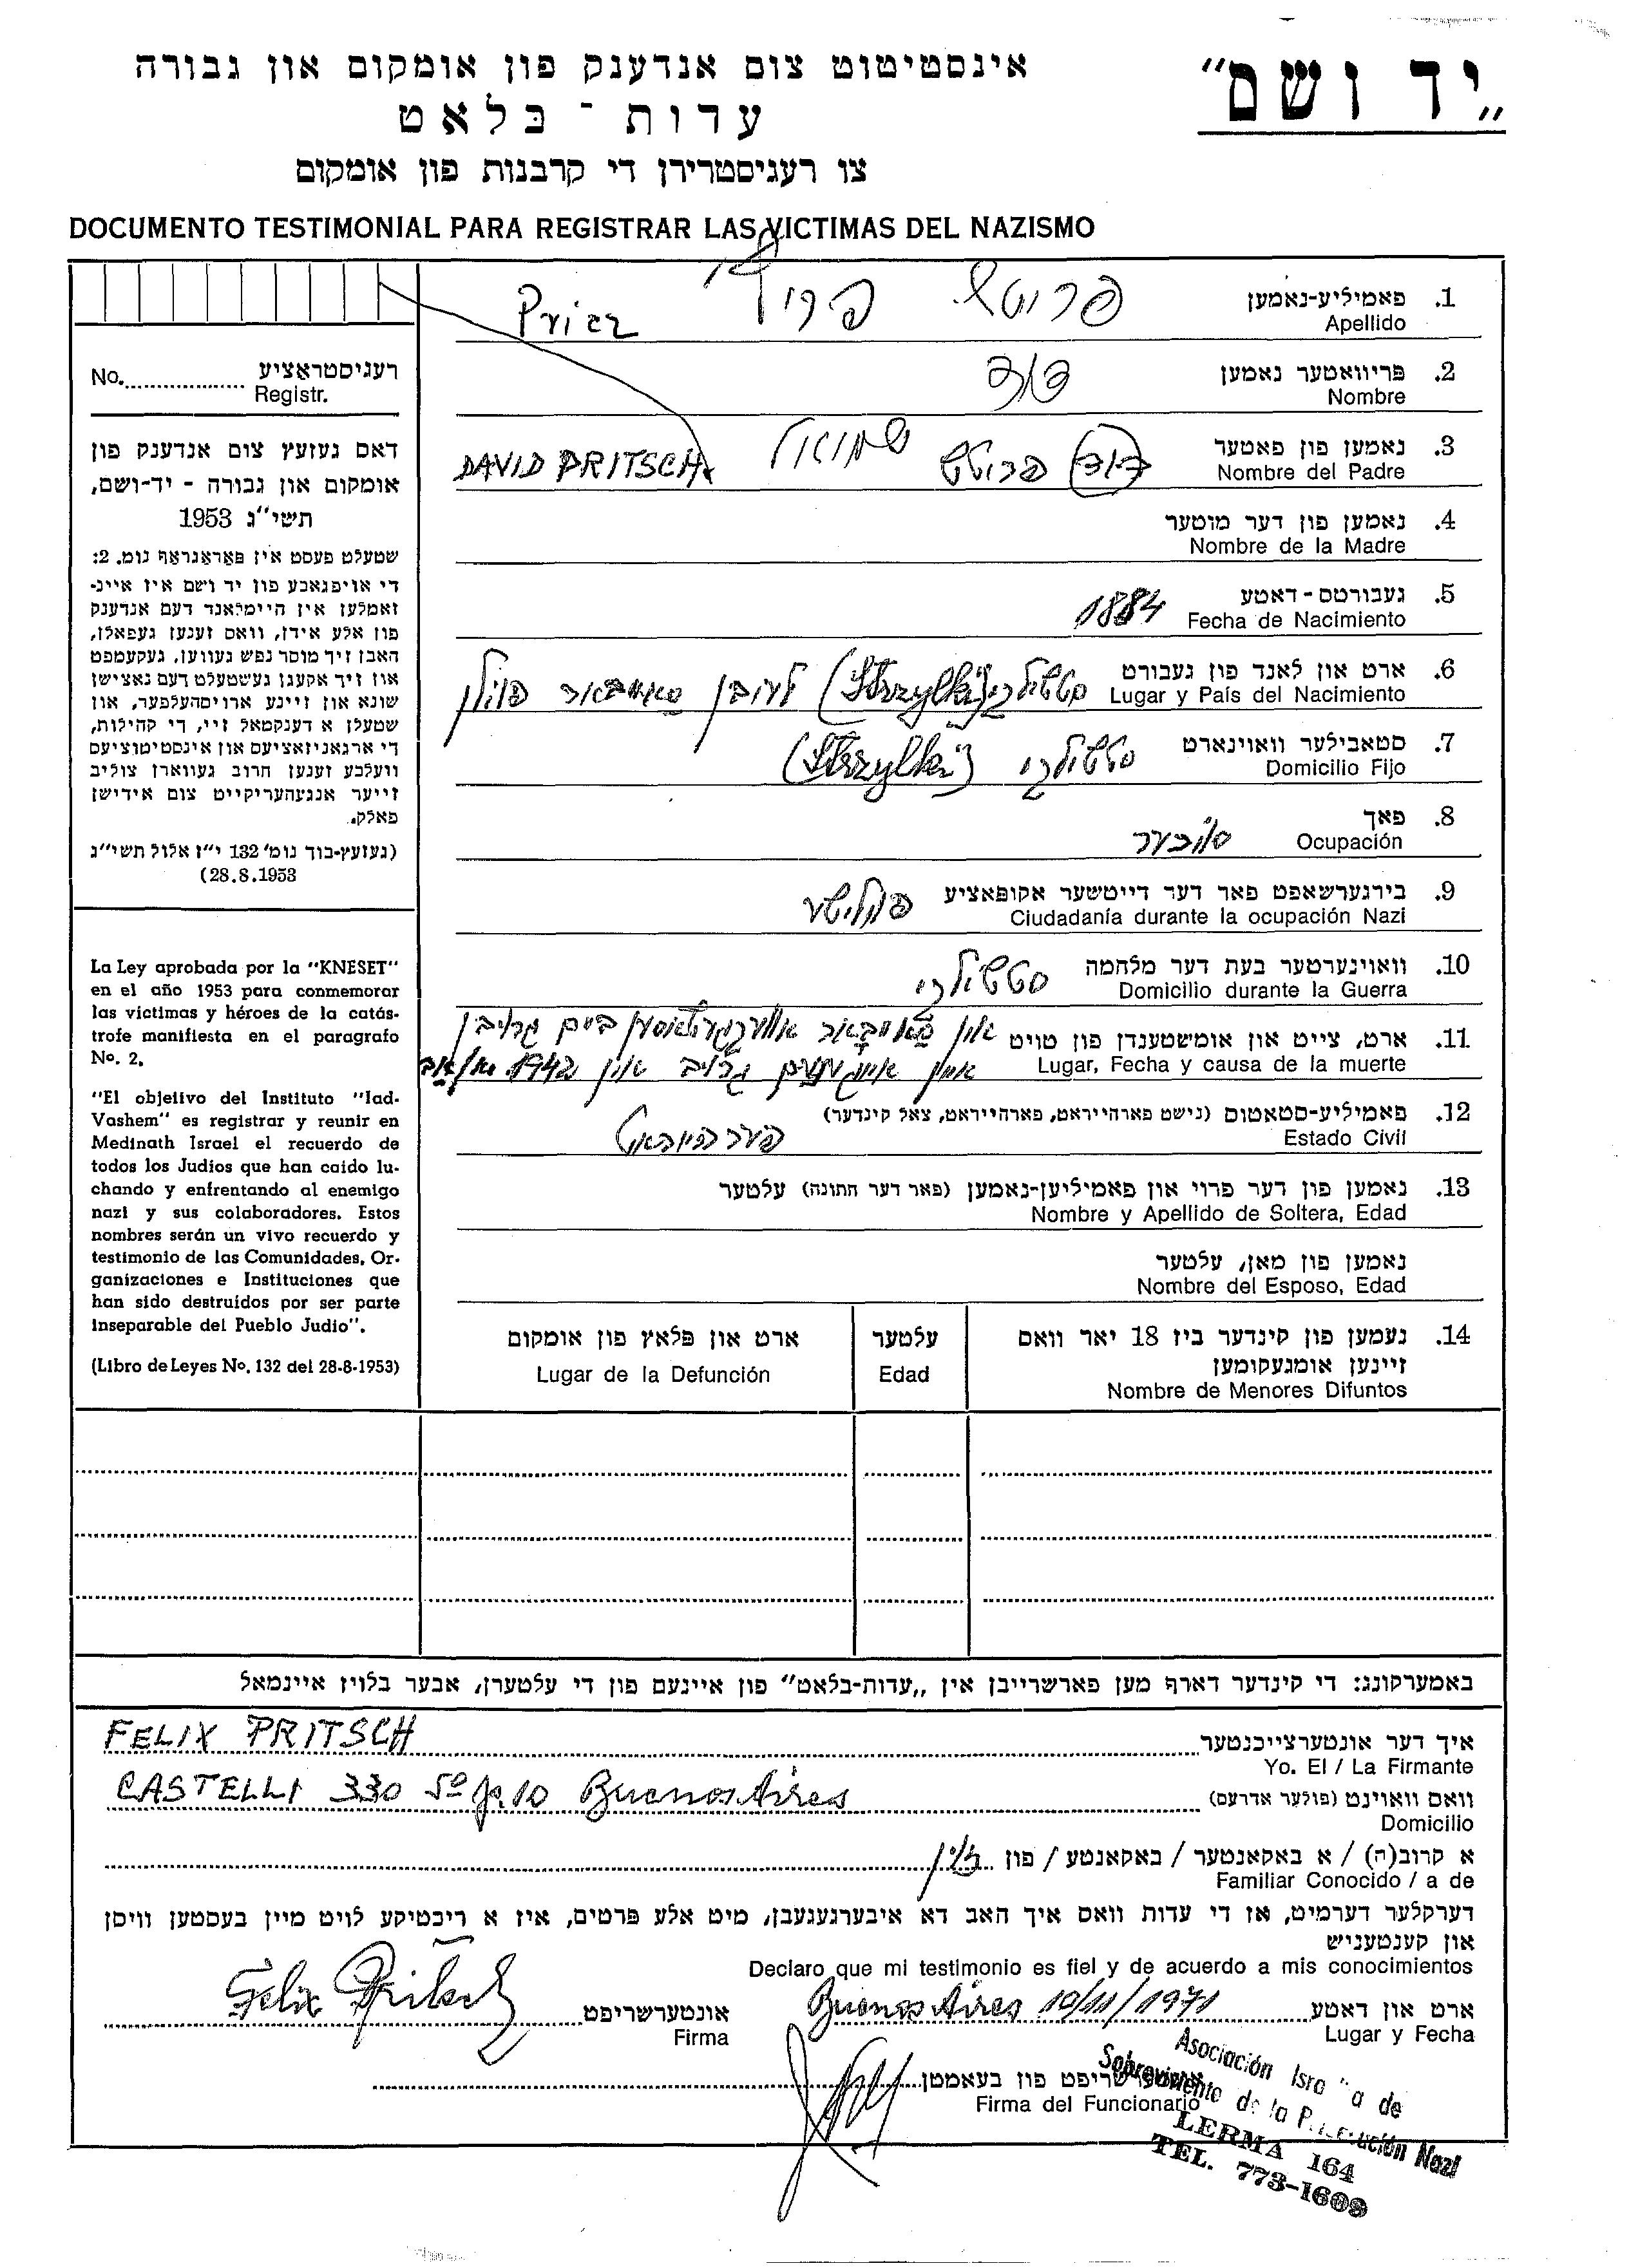 „יד ושם"
אינסטיטוט צום אנדענק פון אומקום און גבורה
עדות - בלאט
צו רעגיסטרירן די קרבנות פון אומקום
DOCUMENTO TESTIMONIAL PARA REGISTRAR LAS VICTIMAS DEL NAZISMO
1. פאמיליע-נאמען
Apellido
Pritsch
2. פריוואטער נאמען דוד
Nombre
3. נאמען פון פאטער דוד שמואל
Nombre del Padre DAVID PRITSCH
4. נאמען פון דער מוטער
Nombre de la Madre
5. געבורטס-דאטע
Fecha de Nacimiento 1884
6. ארט און לאנד פון געבורט
Lugar y País del Nacimiento (Strzylki) לעבן סאמבאר פוילן
7. סטאבילער וואוינארט
Domicilio Fijo (Strzylki)
8. פאך
Ocupación סוחר
9. בירגערשאפט פאר דער דייטשער אקופאציע
Ciudadanía durante la ocupación Nazi
10. וואוינערטער בעת דער מלחמה
Domicilio durante la Guerra
11. ארט, צייט און אומשטענדן פון טויט
Lugar, Fecha y causa de la muerte
12. פאמיליע-סטאטוס (נישט פארהייראט, פארהייראט, צאל קינדער)
Estado Civil
13. נאמען פון דער פרוי און פאמיליען-נאמען (פאר דער חתונה) עלטער
Nombre y Apellido de Soltera, Edad
נאמען פון מאן, עלטער
Nombre del Esposo, Edad
14. נעמען פון קינדער ביז 18 יאר וואס
זיינען אומגעקומען
Nombre de Menores Difuntos
עלטער
Edad
ארט און פלאץ פון אומקום
Lugar de la Defunción
רעגיסטראציע
No. Registr.
דאס געזעץ צום אנדענק פון
אומקום און גבורה - יד-ושם,
תשי"ג 1953
שטעלט פעסט אין פאראגראף נומ. 2:
די אויפגאבע פון יד ושם איז איינ-
זאמלען אין היימלאנד דעם אנדענק
פון אלע אידן, וואס זענען געפאלן,
האבן זיך מוסר נפש געווען, געקעמפט
און זיך אקעגן געשטעלט דעם נאצישן
שונא און זיינע ארויסהעלפער, און
שטעלן א דענקמאל זיי, די קהילות,
די ארגאניזאציעס און אינסטיטוציעס
וועלכע זענען חרוב געווארן צוליב
זייער אנגעהעריקייט צום אידישן
פאלק.
(געזעץ-בוך נומ' 132 י"ז אלול תשי"ג
28.8.1953)
La Ley aprobada por la "KNESET"
en el año 1953 para conmemorar
las victimas y héroes de la catás-
trofe manifiesta en el paragrafo
Nº. 2.
"El objetivo del Instituto "Iad-
Vashem" es registrar y reunir en
Medinath Israel el recuerdo de
todos los Judíos que han caido lu-
chando y enfrentando al enemigo
nazi y sus colaboradores. Estos
nombres serán un vivo recuerdo y
testimonio de las Comunidades, Or-
ganizaciones e Instituciones que
han sido destruídos por ser parte
inseparable del Pueblo Judío".
(Libro de Leyes Nº. 132 del 28-8-1953)
באמערקונג: די קינדער דארף מען פארשרייבן אין „עדות-בלאט" פון איינעם פון די עלטערן, אבער בלויז איינמאל
איך דער אונטערצייכנטער FELIX PRITSCH
Yo. El / La Firmante
וואס וואוינט (פולער אדרעס) CASTELLI 330 5º 10 Buenos Aires
Domicilio
א קרוב(ה) / א באקאנטער / באקאנטע / פון
Familiar Conocido / a de
דערקלער דערמיט, אז די עדות וואס איך האב דא איבערגעגעבן, מיט אלע פרטים, איז א ריכטיקע לויט מיין בעסטען וויסן
און קענטעניש
Declaro que mi testimonio es fiel y de acuerdo a mis conocimientos
ארט און דאטע Buenos Aires 10/11/1971
Lugar y Fecha
אונטערשריפט Felix Pritsch
Firma
אונטערשריפט פון בעאמטן
Firma del Funcionario
Asociación Isra a de
Sobreviviente de la Persecución Nazi
LERMA 164
TEL. 773-1609